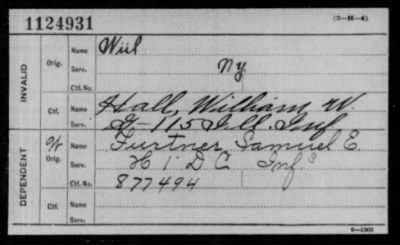 1124931 (3-H-4)
INVALID
Orig. Name Wiil
Serv. Ny
Ctf. No.
Ctf. Name Hall, William W.
Serv. G-115 Ill. Inf
DEPENDENT
O/r Orig. Name Furtner, Samuel E.
Serv. H 1 D C Inf
Ctf. No. 877494
Ctf. Name
Serv.